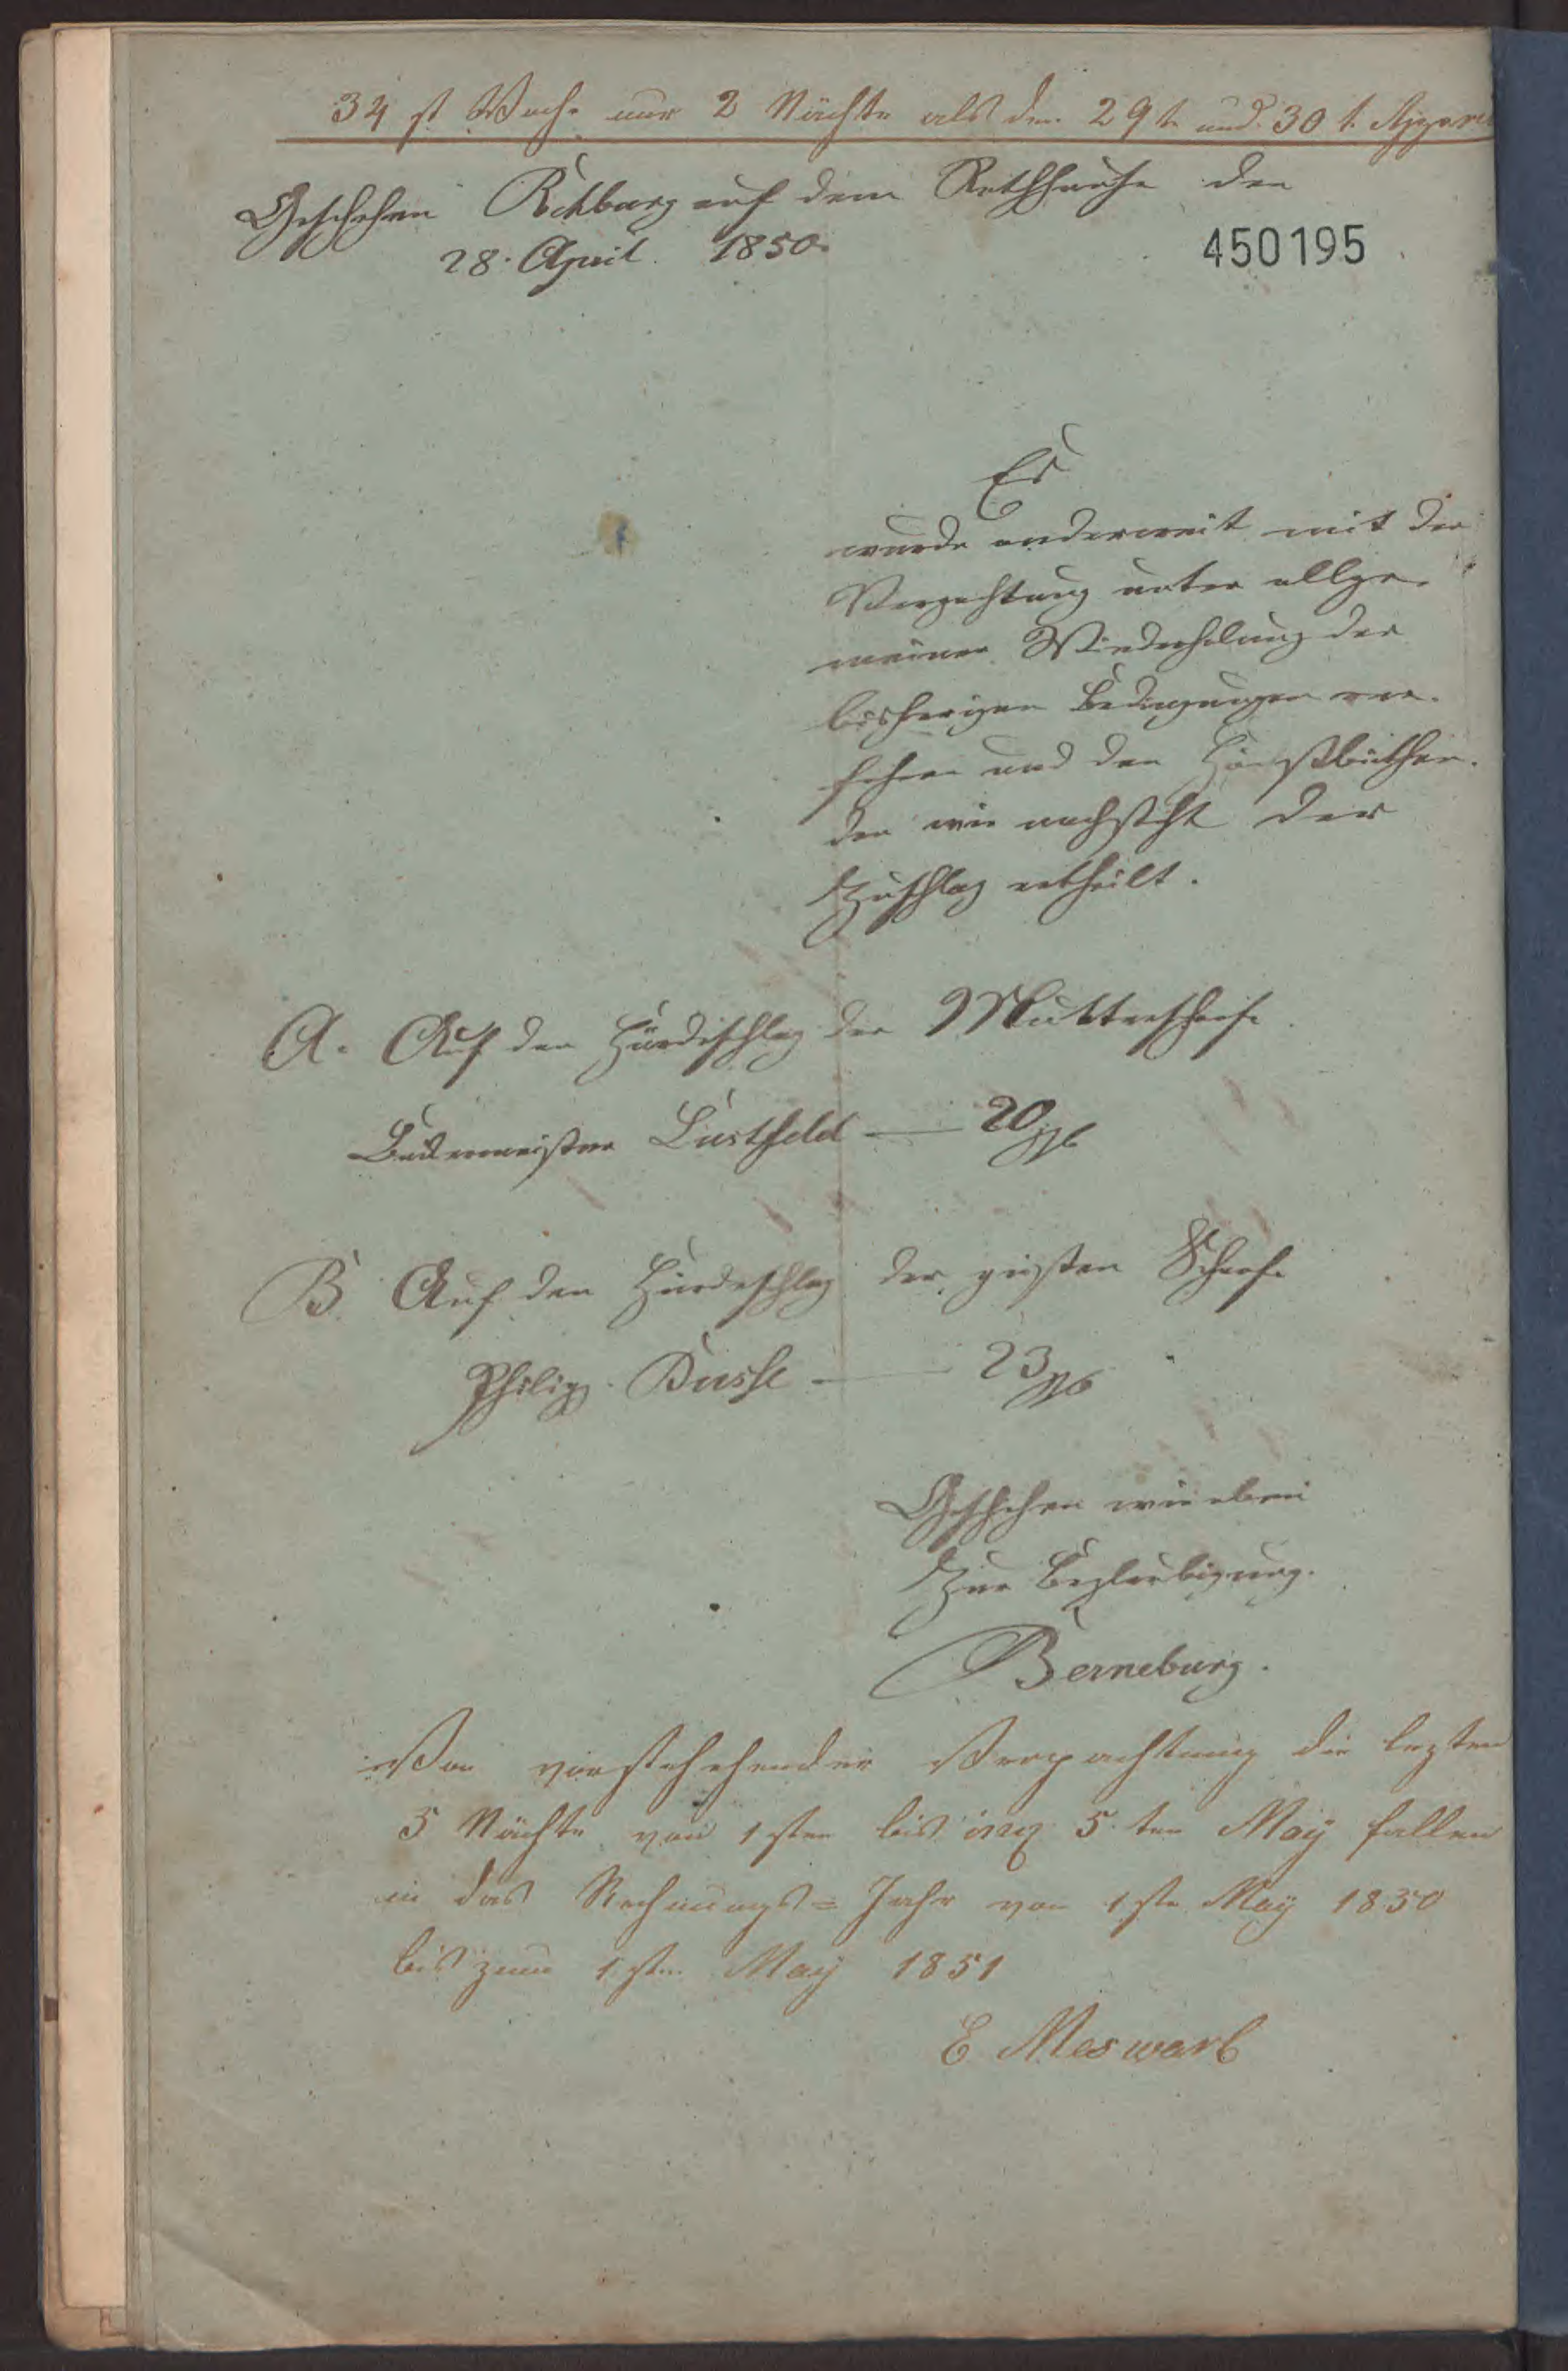 34 st Woche nur 2 Nächte als den 29t. und 30 t. April
Geschehen Rehburg auf dem Rathhause den
28. April. 1850.
450195
Es
wurde anderweit mit der
Verpachtung unter allge-
meiner Wiederholung der
bisherigen Bedingungen ver-
fahren und den Höchstbiethen-
den wie nachsteht der
Zuschlag ertheilt.
A. Auf den Hürdeschlag der Mutterschafe
Lustfeld — 20
B. Auf den Hürdeschlag der güsten Schafe
Philipp Busse — 23
Geschehen wie oben
Zur Beglaubigung.
Berneburg.
Von vorstehehender Verpachtung die lezten
5 Nächte von 1sten bis incl 5ten May fallen
in das Rechnungs=Jahr von 1ste May 1850
bis zum 1sten May 1851
E Meswarb